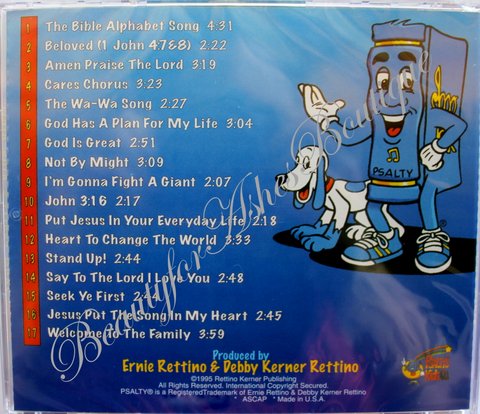 1 The Bible Alphabet Song 4:31
2 Beloved (1 John 4:7&8) 2:22
3 Amen Praise The Lord 3:19
4 Cares Chorus 3:23
5 The Wa-Wa Song 2:27
6 God Has A Plan For My Life 3:04
7 God Is Great 2:51
8 Not By Might 3:09
9 I'm Gonna Fight A Giant 2:07
10 John 3:16 2:17
11 Put Jesus In Your Everyday Life 2:18
12 Heart To Change The World 3:33
13 Stand Up! 2:44
14 Say To The Lord I Love You 2:48
15 Seek Ye First 2:44
16 Jesus Put The Song In My Heart 2:45
17 Welcome To The Family 3:59
PSALTY
BeautyforAshesBoutique
Produced by
Ernie Rettino & Debby Kerner Rettino
©1995 Rettino Kerner Publishing
All Rights Reserved. International Copyright Secured.
PSALTY® is a RegisteredTrademark of Ernie Rettino & Debby Kerner Rettino
ASCAP * Made in U.S.A.